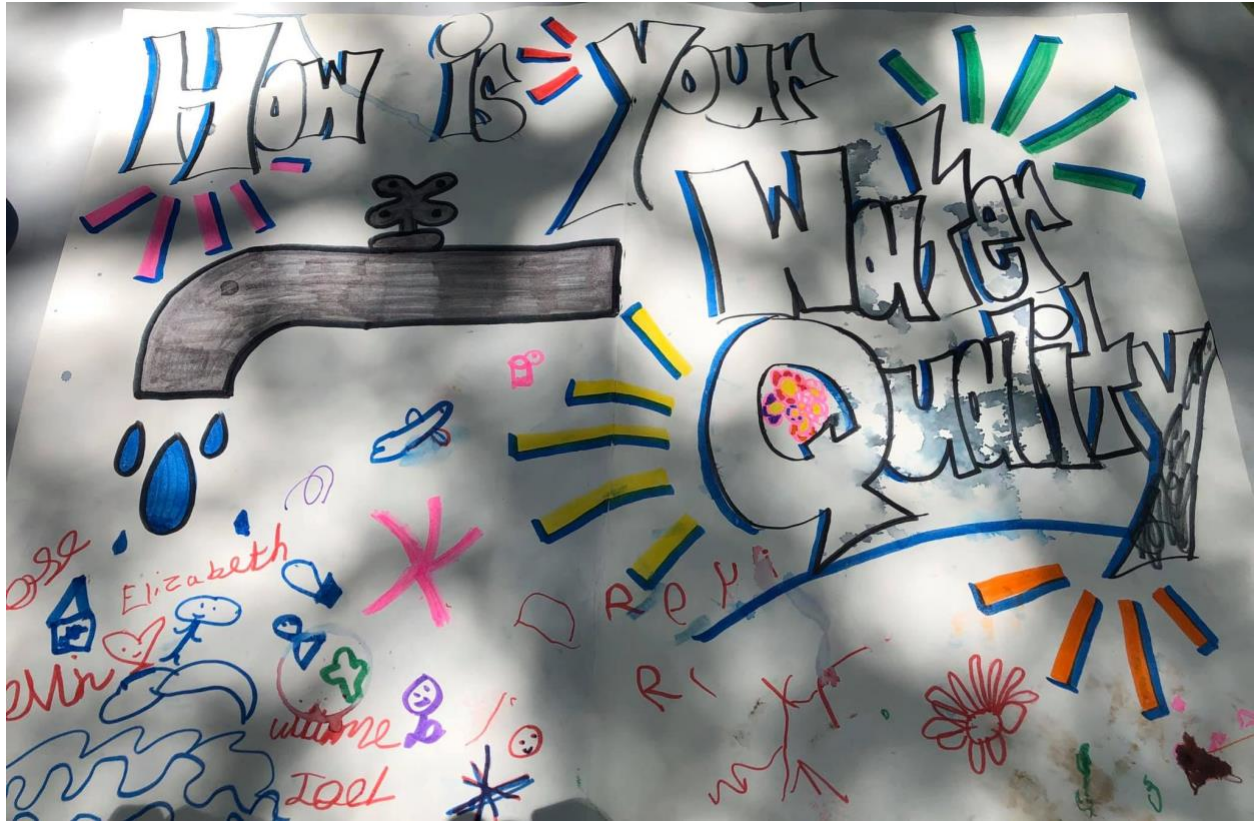 How is Your
Water
Quality
Elizabeth
Remi
Ri
Joel